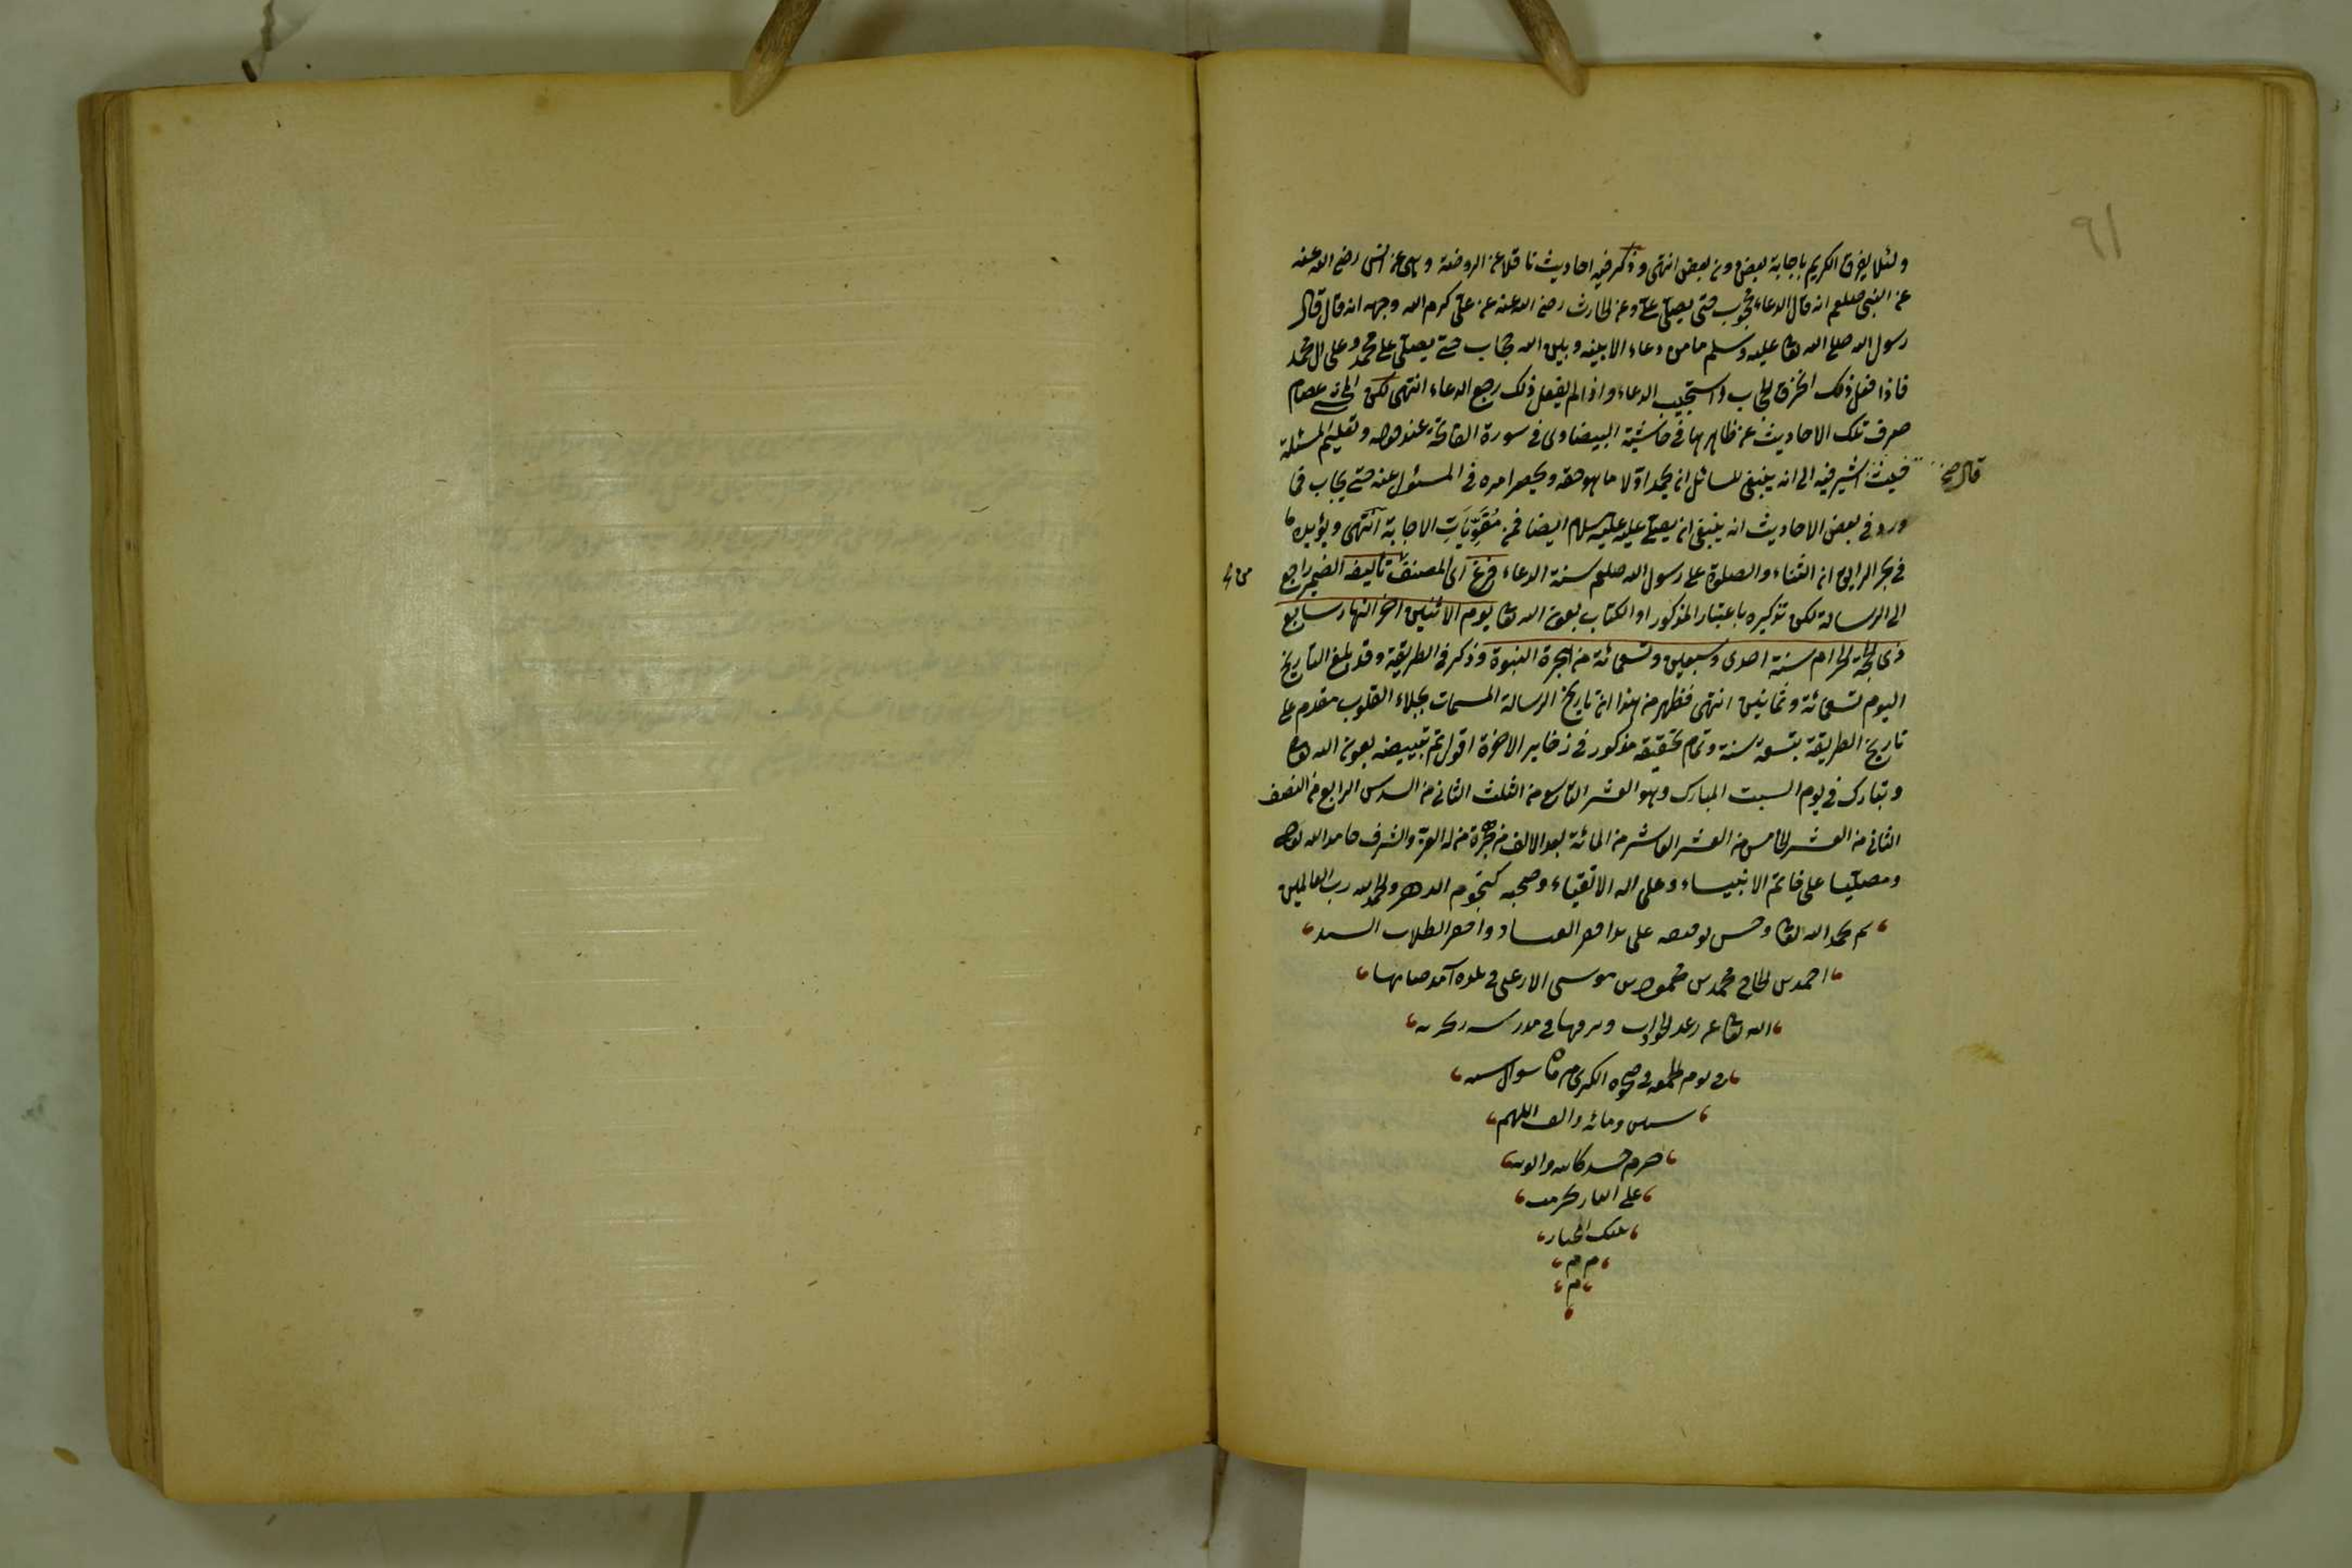 ٩١
ولئلا يفرق الكريم باجابة بعض دون بعض انتهى وذكر فيه احاديث ناقلا عن الروضة وهى عن انس رضى الله عنه
عن النبى صلعم انه قال الدعاء محجوب حتى يصلى على وعن الحارث رضى الله عنه عن على كرم الله وجهه انه قال قال
رسول الله صلى الله تعا عليه وسلم ما من دعاء الا بينه وبين الله حجاب حتى يصلى على محمد وعلى ال محمد
فاذا فعل ذلك انخرق الحجاب واستجيب الدعاء واذا لم يفعل ذلك رجع الدعاء انتهى لكن عصام
صرف تلك الاحاديث عن ظاهرها فى حاشية البيضاوى فى سورة الفاتحة عند وتعليم المسئلة
فيث اشير فيه الى انه ينبغى للسائل ان يحمد اولا ما هو حقه ويحصر امره فى المسئول عنه حتى يجاب فما
قال
ورد فى بعض الاحاديث انه ينبغى ان يصلى عليه عليه سلام ايضا فمن مقويات الاجابة انتهى ويؤيده ما
فى بحر الرايق ان الثناء والصلوة على رسول الله صلعم سنة الدعاء فرغ اى المصنف تأليفه الضمير راجع
الى الرسالة لكن تذكيره باعتبار المذكور او الكتاب بعون الله تعا يوم الاثنين اخر النهار سابع
ذى الحجة الحرام سنة احدى وسبعين وتسعمائة من الهجرة النبوة وذكر فى الطريقة وقد بلغ التاريخ
اليوم تسعمائة وثمانين انتهى فظهر من هذا ان تاريخ الرسالة المسمات بجلاء القلوب مقدم على
تاريخ الطريقة بتسعة سنة وتمام تحقيقه مذكور فى ذخاير الاخرة اقول تم تبييضه بعون الله تعا
وتبارك فى يوم السبت المبارك وهو العشر التاسع من الثلث الثانى من السدس الرابع من النصف
الثانى من العشر الخامس من العشر العاشر من المائة بعد الالف من هجرة من له العز والشرف حامدا لله تعا
ومصليا على خاتم الانبياء وعلى اله الاتقياء وصحبه كنجوم الدهر والحمد لله رب العالمين
تم بحمد الله تعا وحسن توفيقه على يد افقر العباد وافقر الطلاب السيد
احمد بن الحاج محمد بن محمود بن موسى فى بلده آمد صانها
الله تعا عن وفى مدرسه
فى يوم الجمعه فى الكبرى من شوال سنه
ستين ومائه والف اللهم
ارحم كاتبه والديه
على
ملك الجبار
م م
م